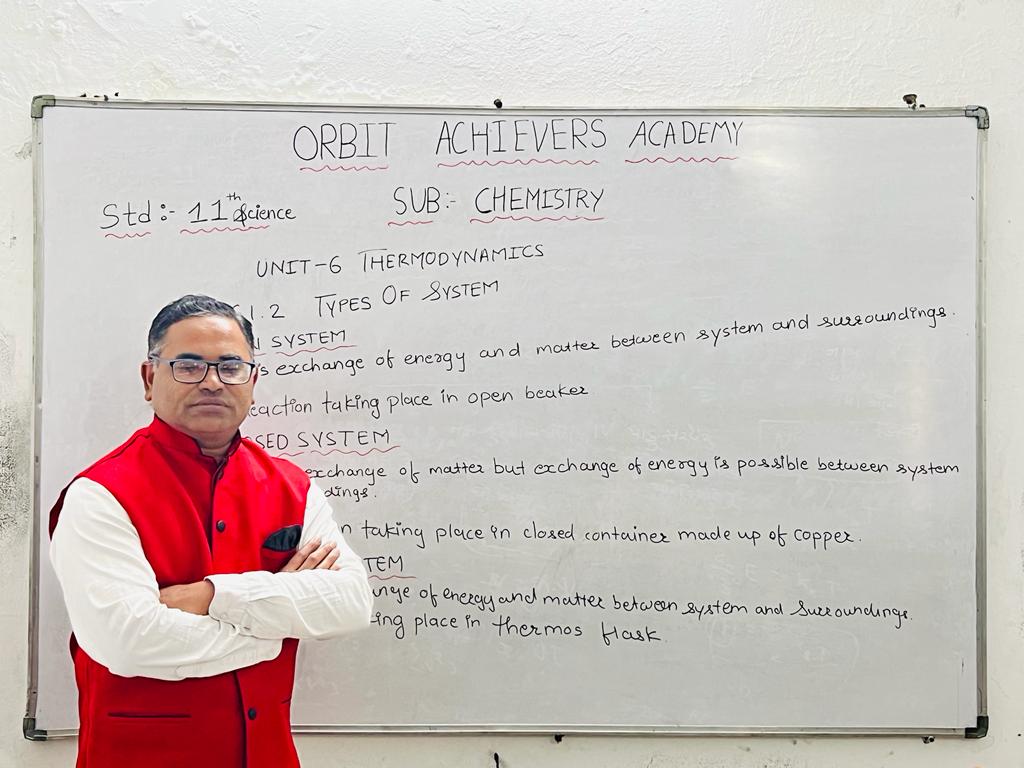 ORBIT ACHIEVERS ACADEMY
Std:- 11th Science
SUB:- CHEMISTRY
UNIT-6 THERMODYNAMICS
1.2 TYPES OF SYSTEM
SYSTEM
exchange of energy and matter between system and surroundings.
taking place in open beaker
SYSTEM
exchange of matter but exchange of energy is possible between system
taking place in closed container made up of copper.
of energy and matter between system and surroundings.
place in thermos flask.